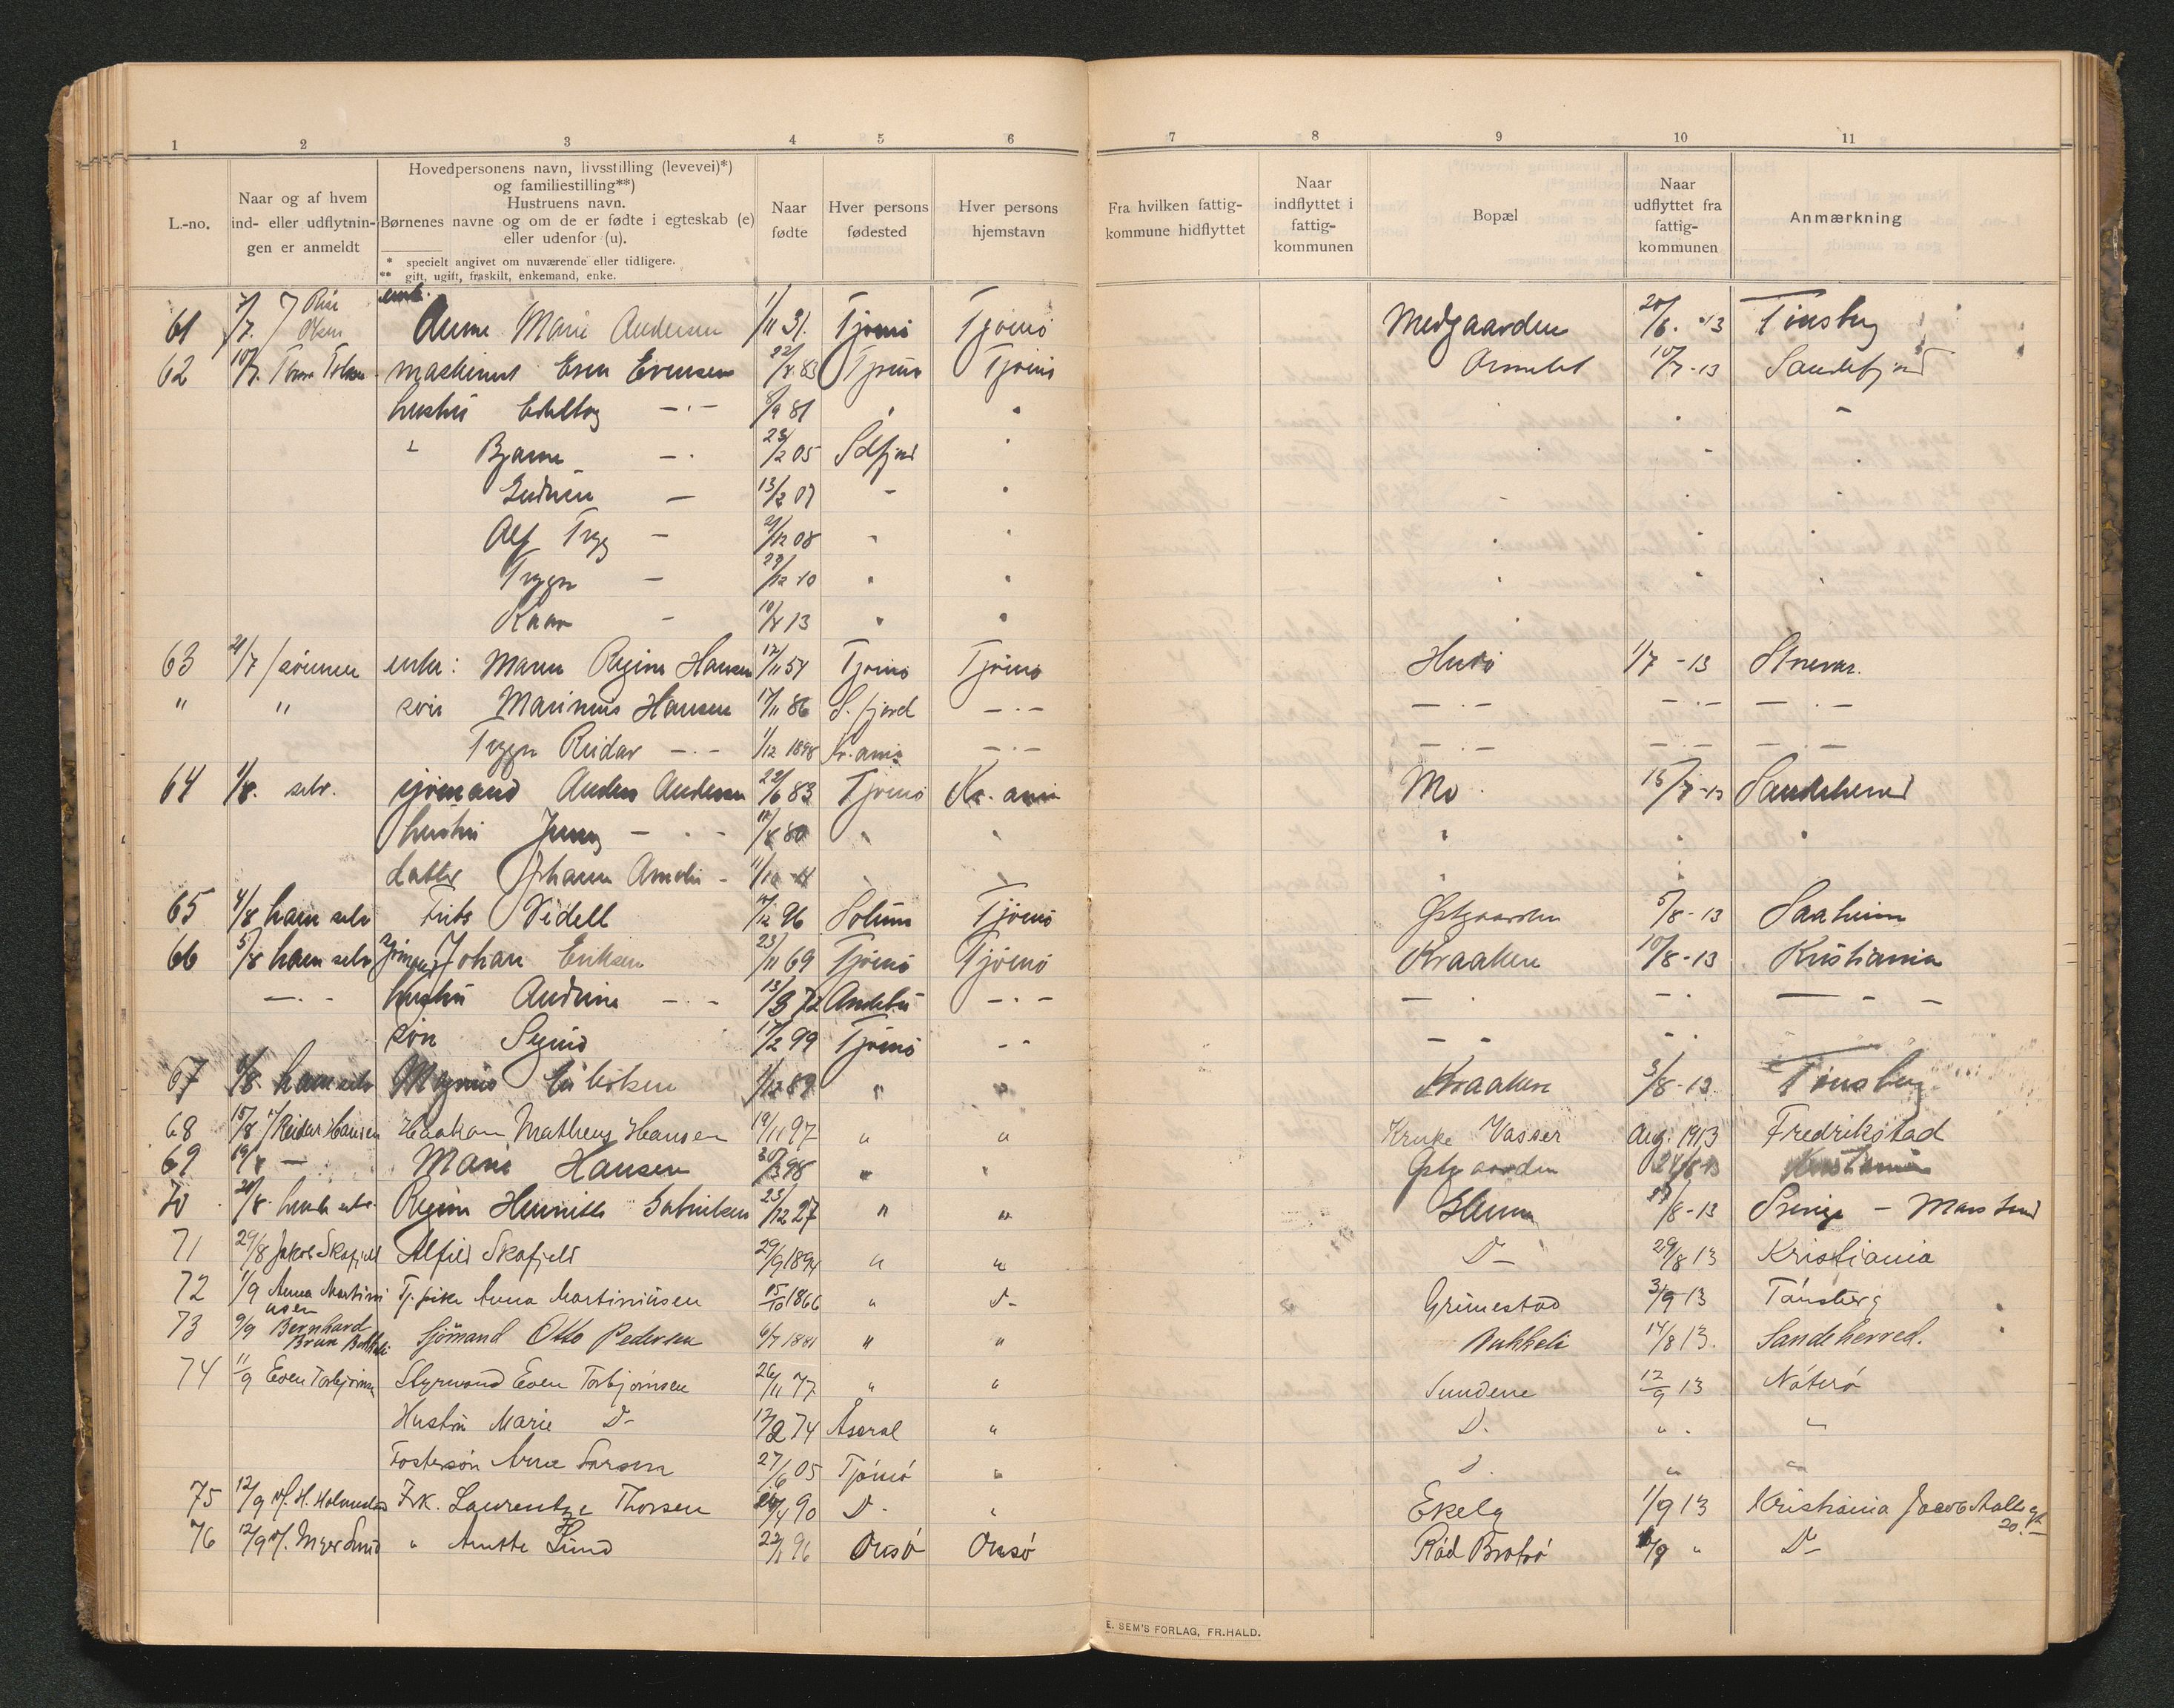 1 2 3 4 5 6 7 8 9 10 11
L.-no.
Naar og af hvem
ind- eller udflytnin-
gen er anmeldt
Hovedpersonens navn, livsstilling (levevei)*)
og familiestilling**)
Hustruens navn.
Børnenes navne og om de er fødte i egteskab (e)
eller udenfor (u).
* specielt angivet om nuværende eller tidligere.
** gift, ugift, fraskilt, enkemand, enke.
Naar
fødte
Hver persons
fødested
Hver persons
hjemstavn
Fra hvilken fattig-
kommune hidflyttet
Naar
indflyttet i
fattig-
kommunen
Bopæl
Naar
udflyttet fra
fattig-
kommunen
Anmærkning
enke.
61 7/7 Olsen Anne Marie Andersen 1/11 31. Tjømø Tjømø Medgaarden 20/6 - 13 Tønsberg
62 10/7 maskinist Even Evensen 22/8 83 Tjømø Tjømø Ormelet 10/7 - 13 Sandefjord
hustru — . — 8/9 81
" Bjarne — . 23/2 05 S.fjord
Gudrun — 13/2 07 -
Alf Tryg — 2/12 08
Trygve — 29/12 10
Kaare - 10/8 13
63 21/7 sønnen enke: Maren Regine Hansen 12/11 54 Tjømø Tjømø Hvasø 1/7 - 13
" " søn Marinius Hansen 17/11 86 S.fjord — . — — . — — . — — . —
Trygve Reidar — . — 1/12 1898 Kr.ania — . — — . — — . — — . —
64 1/8. selv. sjømand Anders Andersen 22/6 83 Tjømø Kr. ania Mo 15/7 - 13 Sandeherred
hustru Jenny — . - 11/8 80
datter Johanne Amalie - 11/10 11
65 4/8 ham selv Frits Videll 17/12 96 Solum Tjømø Østgaarden 5/8 - 13 Saaheim
66 5/8 ham selv Johan Eriksen 23/11 69 Tjømø Tjømø Kraaken 10/8 - 13 Kristiania
— . - hustru Andrine — . - 13/3 72 Andebu — . —
søn Sigurd 17/2 99 Tjømø - -
67 8/8 ham selv Magnus Eriksen 1/12 89 " " Kraaken 3/8 - 13 Tønsberg
68 15/8 v/ Reidar Hansen Haakon Matheus Hansen 19/11 97 " " Kruke Vasser Aug. 1913 Fredrikstad
69 19/8 — Marie Hansen 30/3 98 " " Østgaarden 21/8 13 Kristiania
70 21/8. Regine Henriette Gabrielsen 23/12 27 " " Glenne 27/8 - 13
71 29/8 Jakob Skafjeld Alfild Skafjeld 29/9 1894 " " D- 29/8 13 Kristiania
72 1/9 Anna Martini
usen Tj. pike Anna Martiniusen 15/10 1866 " D- Grimestad 3/9 13 Tønsberg
73 9/9 Bernhard
Brun Sjömand Otto Pedersen 6/7 1881 " " Bukkeli 14/8 13. Sandeherred.
74 11/9 Even Torbjörnsen Styrmand Even Torbjörnsen 26/11 77 " " Sundene 12/9 13 Nöterö
Hustru Marie D- 17/2 74 Åseral " D. " . "
Fostersön Arne Larsen 27/6 05 Tjömö " D. " "
75 12/9 v/. H. Holmedal Frk. Laurentze Thorsen 24/4 90 D- " Ekely 1/9 13 Kristiania Jacob Aalls gt.
20. —
76 12/9 v/. Inger Lund " Anette Lund 22/1 96 Onsö Onsö Röd Brøtsö 10/9 " D-
E. SEM'S FORLAG, FR.HALD.